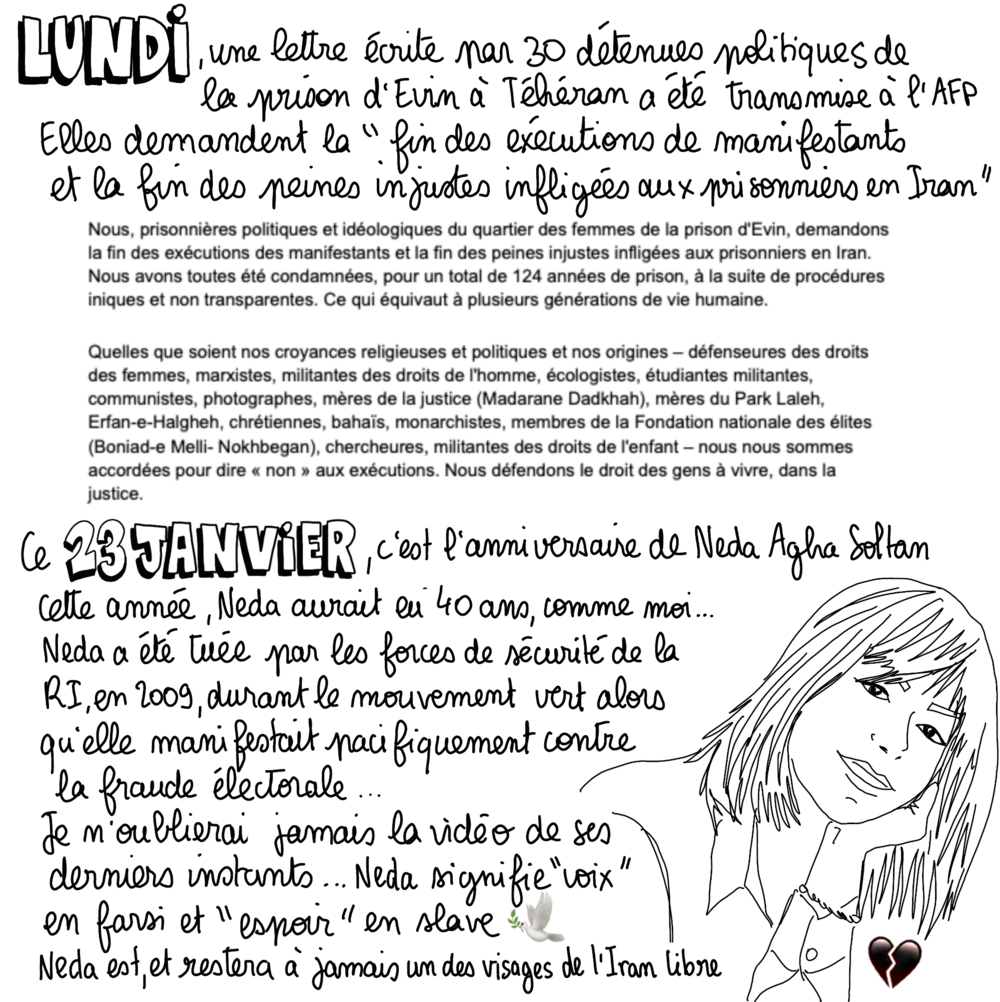 LUNDI, une lettre écrite par 30 détenues politiques de
la prison d'Evin à Téhéran a été transmise à l'AFP
Elles demandent la "fin des exécutions de manifestants
et la fin des peines injustes infligées aux prisonniers en Iran"
Nous, prisonnières politiques et idéologiques du quartier des femmes de la prison d'Evin, demandons
la fin des exécutions des manifestants et la fin des peines injustes infligées aux prisonniers en Iran.
Nous avons toutes été condamnées, pour un total de 124 années de prison, à la suite de procédures
iniques et non transparentes. Ce qui équivaut à plusieurs générations de vie humaine.
Quelles que soient nos croyances religieuses et politiques et nos origines – défenseures des droits
des femmes, marxistes, militantes des droits de l'homme, écologistes, étudiantes militantes,
communistes, photographes, mères de la justice (Madarane Dadkhah), mères du Park Laleh,
Erfan-e-Halgheh, chrétiennes, bahaïs, monarchistes, membres de la Fondation nationale des élites
(Boniad-e Melli- Nokhbegan), chercheures, militantes des droits de l'enfant – nous nous sommes
accordées pour dire « non » aux exécutions. Nous défendons le droit des gens à vivre, dans la
justice.
Ce 23 JANVIER, c'est l'anniversaire de Neda Agha Soltan
Cette année, Neda aurait eu 40 ans, comme moi...
Neda a été tuée par les forces de sécurité de la
RI, en 2009, durant le mouvement vert alors
qu'elle manifestait pacifiquement contre
la fraude électorale...
Je n'oublierai jamais la vidéo de ses
derniers instants... Neda signifie "voix"
en farsi et "espoir" en slave
Neda est, et restera à jamais un des visages de l'Iran libre